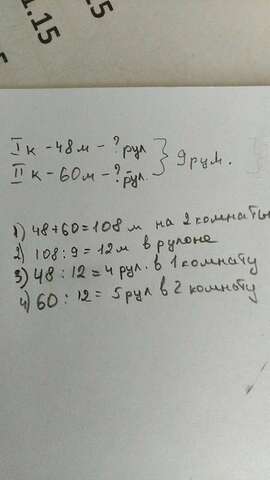 1.15
.15
I к - 48 м - ? рул
II к - 60 м - ? рул. } 9 рул.
1) 48+60=108 м на 2 комнаты
2) 108:9=12 м в рулоне
3) 48:12=4 рул. в 1 комнату
4) 60:12=5 рул в 2 комнату